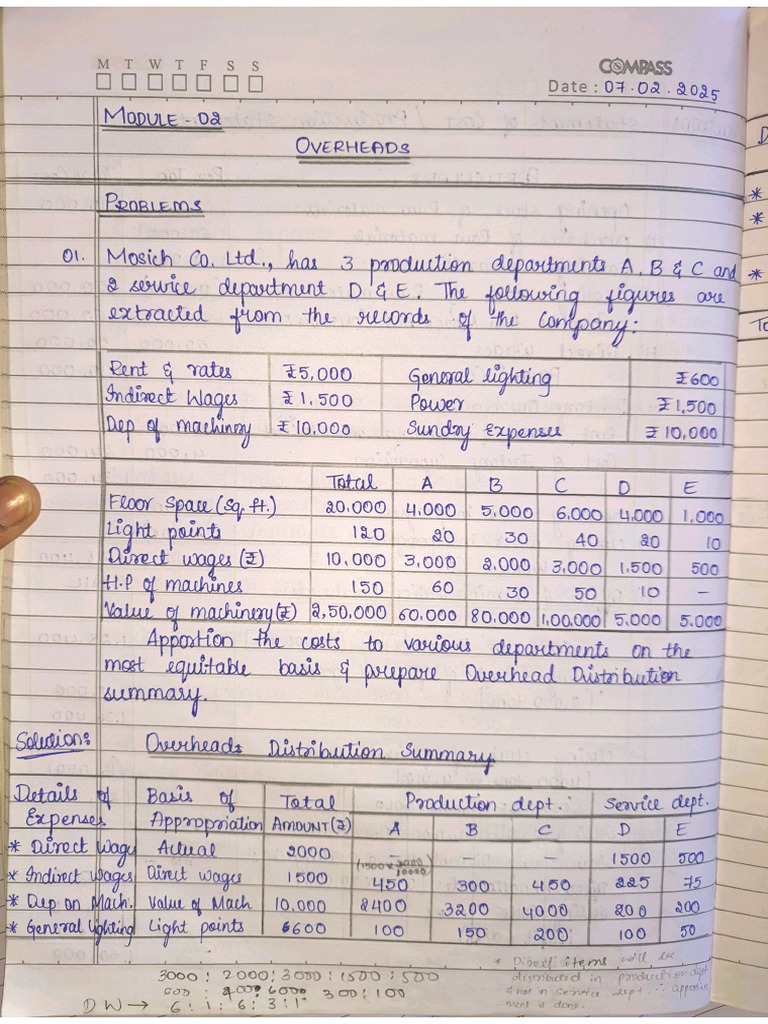 M T W T F S S
COMPASS
Date : 07.02.2025
MODULE-02
OVERHEADS
PROBLEMS
01. Mosich Co. Ltd., has 3 production departments A, B & C and
2 service department D & E. The following figures are
extracted from the records of the company:
Rent & rates ₹5,000 General lighting ₹600
Indirect Wages ₹1,500 Power ₹1,500
Dep of machinery ₹10,000 Sundry Expenses ₹10,000
Total A B C D E
Floor Space (Sq. ft.) 20,000 4,000 5,000 6,000 4,000 1,000
Light points 120 20 30 40 20 10
Direct wages (₹) 10,000 3,000 2,000 3,000 1,500 500
H.P of machines 150 60 30 50 10 -
Value of machinery (₹) 2,50,000 60,000 80,000 1,00,000 5,000 5,000
Apportion the costs to various departments on the
most equitable basis & prepare Overhead Distribution
summary.
Solution: Overheads Distribution Summary
Details of Basis of Total Production dept. Service dept.
Expenses Appropriation AMOUNT (₹) A B C D E
* Direct Wages Actual 2000 - - - 1500 500
(1500 x 3000/10000)
* Indirect wages Direct wages 1500 450 300 450 225 75
* Dep on Mach. Value of Mach 10,000 2400 3200 4000 200 200
* General lighting Light points 600 100 150 200 100 50
* Direct items will be
3000 : 2000 : 3000 : 1500 : 500 distributed in production dept
300 : 100 & not in service dept ∴ apportion
DW → 6 : 1 : 6 : 3 : 1 ment is done.